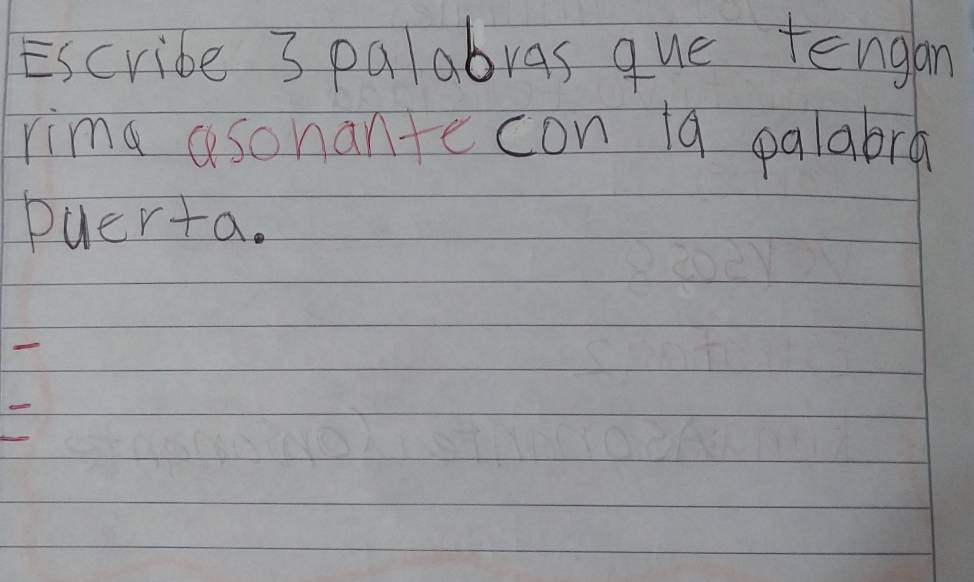 Escribe 3 palabras que tengan
rima asonante con la palabra
puerta.
-
-
-